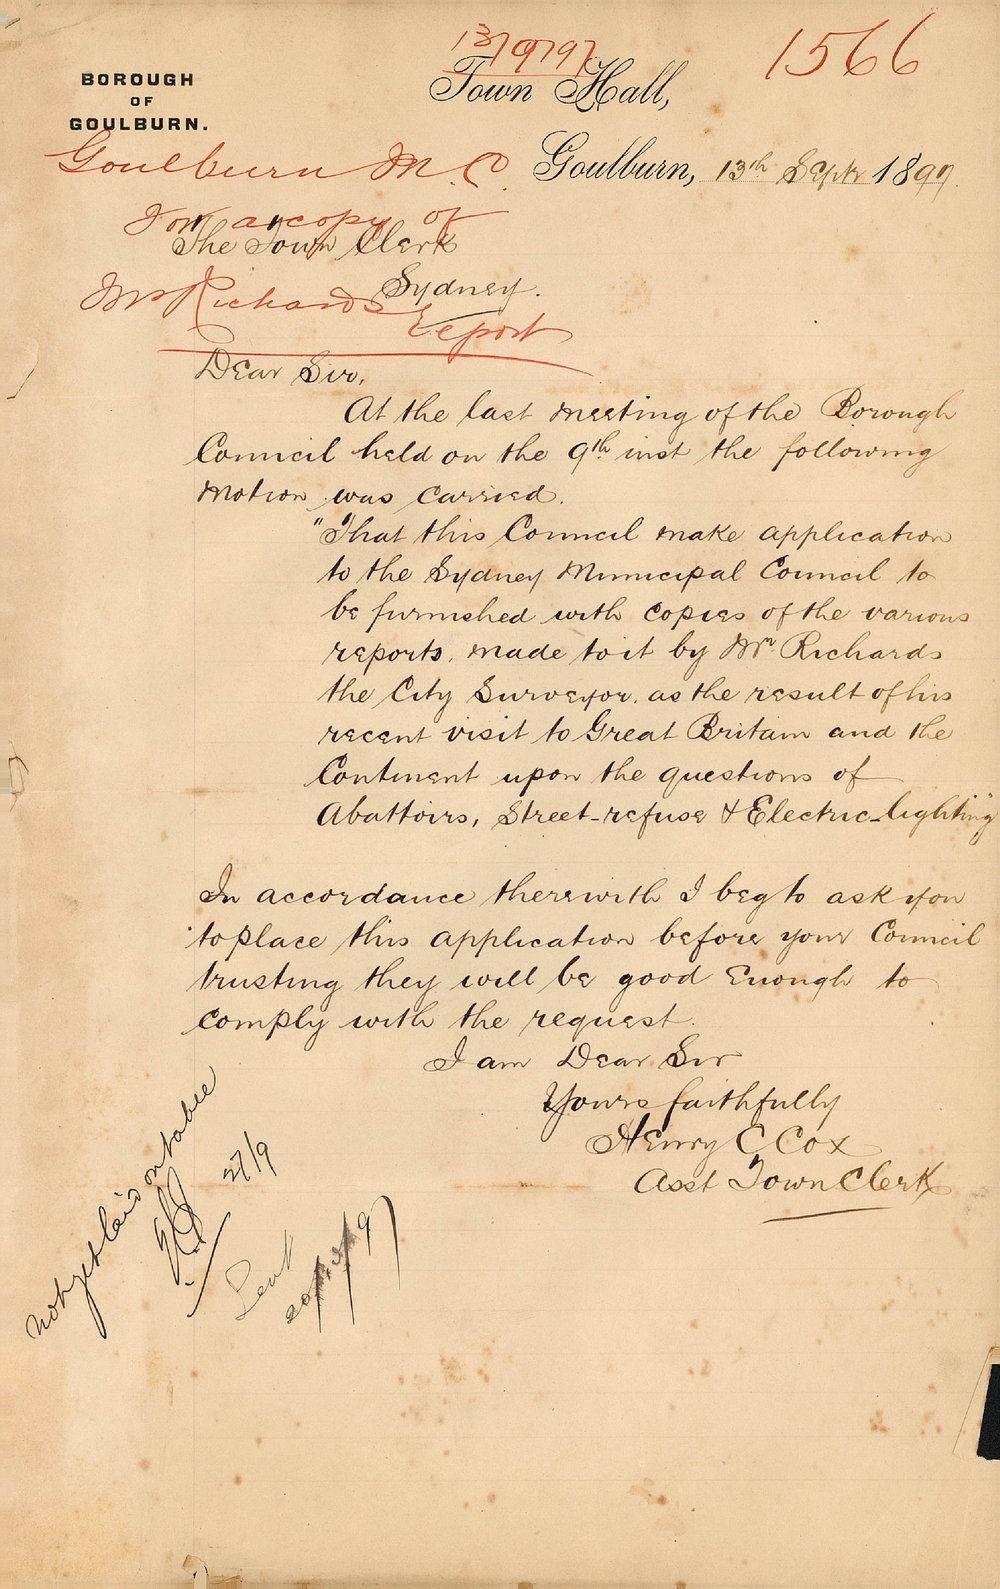 13/9/97
1566
BOROUGH
OF
GOULBURN.
Town Hall,
Goulburn, 13th Septr 1897.
Goulburn M. C.
For a copy of
Mr Richards Report
The Town Clerk
Sydney.
Dear Sir,
At the last meeting of the Borough
Council held on the 9th inst the following
motion was carried.
"That this Council make application
to the Sydney Municipal Council to
be furnished with copies of the various
reports, made to it by Mr Richards
the City Surveyor, as the result of his
recent visit to Great Britain and the
Continent upon the questions of
Abattoirs, Street-refuse & Electric-lighting"
In accordance therewith I beg to ask you
to place this application before your Council
trusting they will be good enough to
comply with the request.
I am Dear Sir
Yours faithfully
Henry C Cox
Asst Town Clerk
Not yet laid on table
27/9
Sent